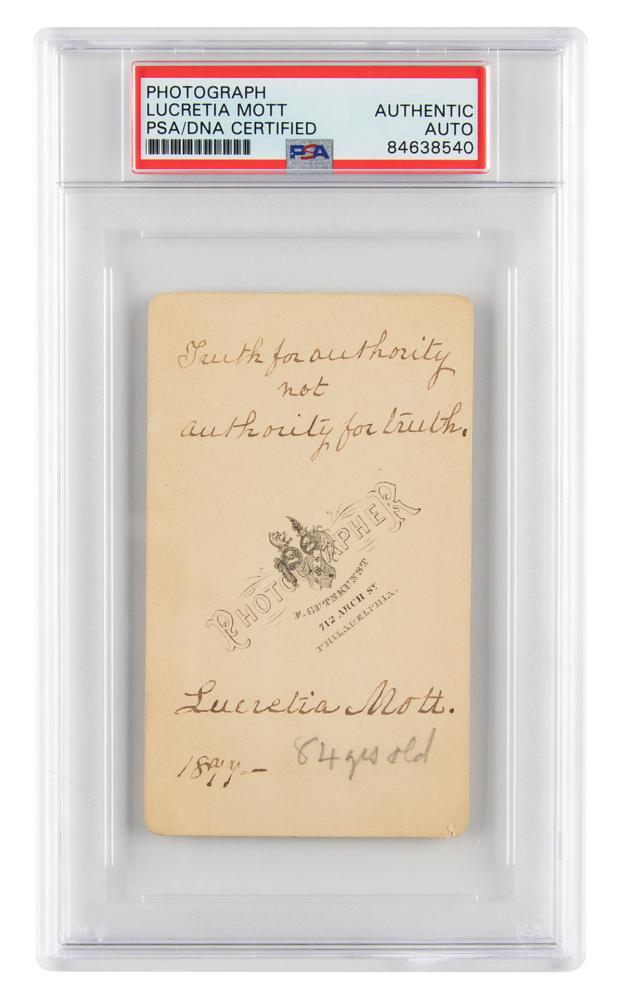 PHOTOGRAPH
LUCRETIA MOTT
PSA/DNA CERTIFIED
AUTHENTIC
AUTO
84638540
PSA
Truth for authority
not
authority for truth.
PHOTOGRAPHER
F. GUTEKUNST
712 ARCH ST
PHILADELPHIA.
Lucretia Mott.
1877
84 yrs old